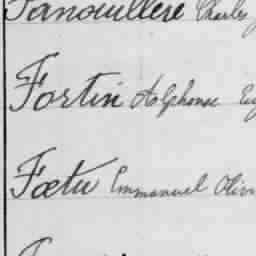 Fanouillère Charles
Fortin Alphonse
Fœtu Emmanuel